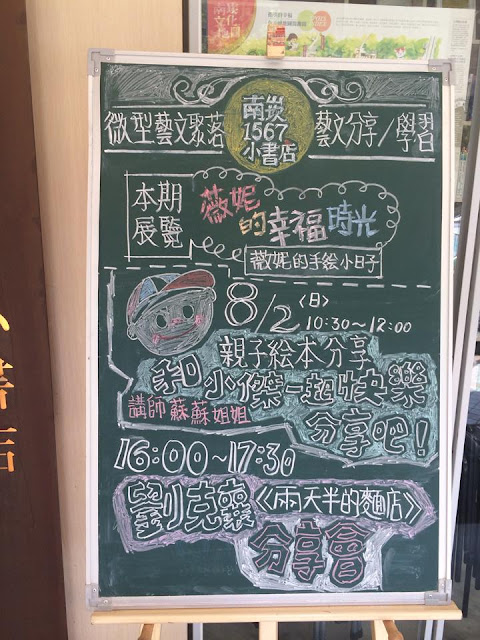 微型藝文聚落
南崁
1567
小書店
藝文分享/學習
本期
展覽
薇妮
的幸福時光
薇妮的手绘小日子
8/2〈日〉
10:30～12:00
親子绘本分享
和小傑一起快樂
分享吧!
講師 蘇蘇姐姐
16:00～17:30
劉克襄《兩天半的麵店》
分享會
書店